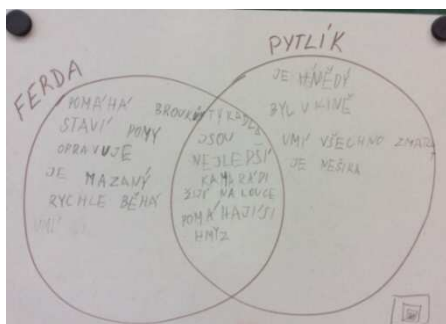 FERDA
PYTLÍK
POMÁHÁ
STAVÍ DOMY
OPRAVUJE
JE MAZANÝ
RYCHLE BĚHÁ
UMÍ
JSOU
NEJLEPŠÍ
KAMARÁDI
ŽIJÍ NA LOUCE
POMÁHAJÍ SI
HMYZ
JE HNĚDÝ
BYL V KINĚ
UMÍ VŠECHNO
JE NEŠIKA